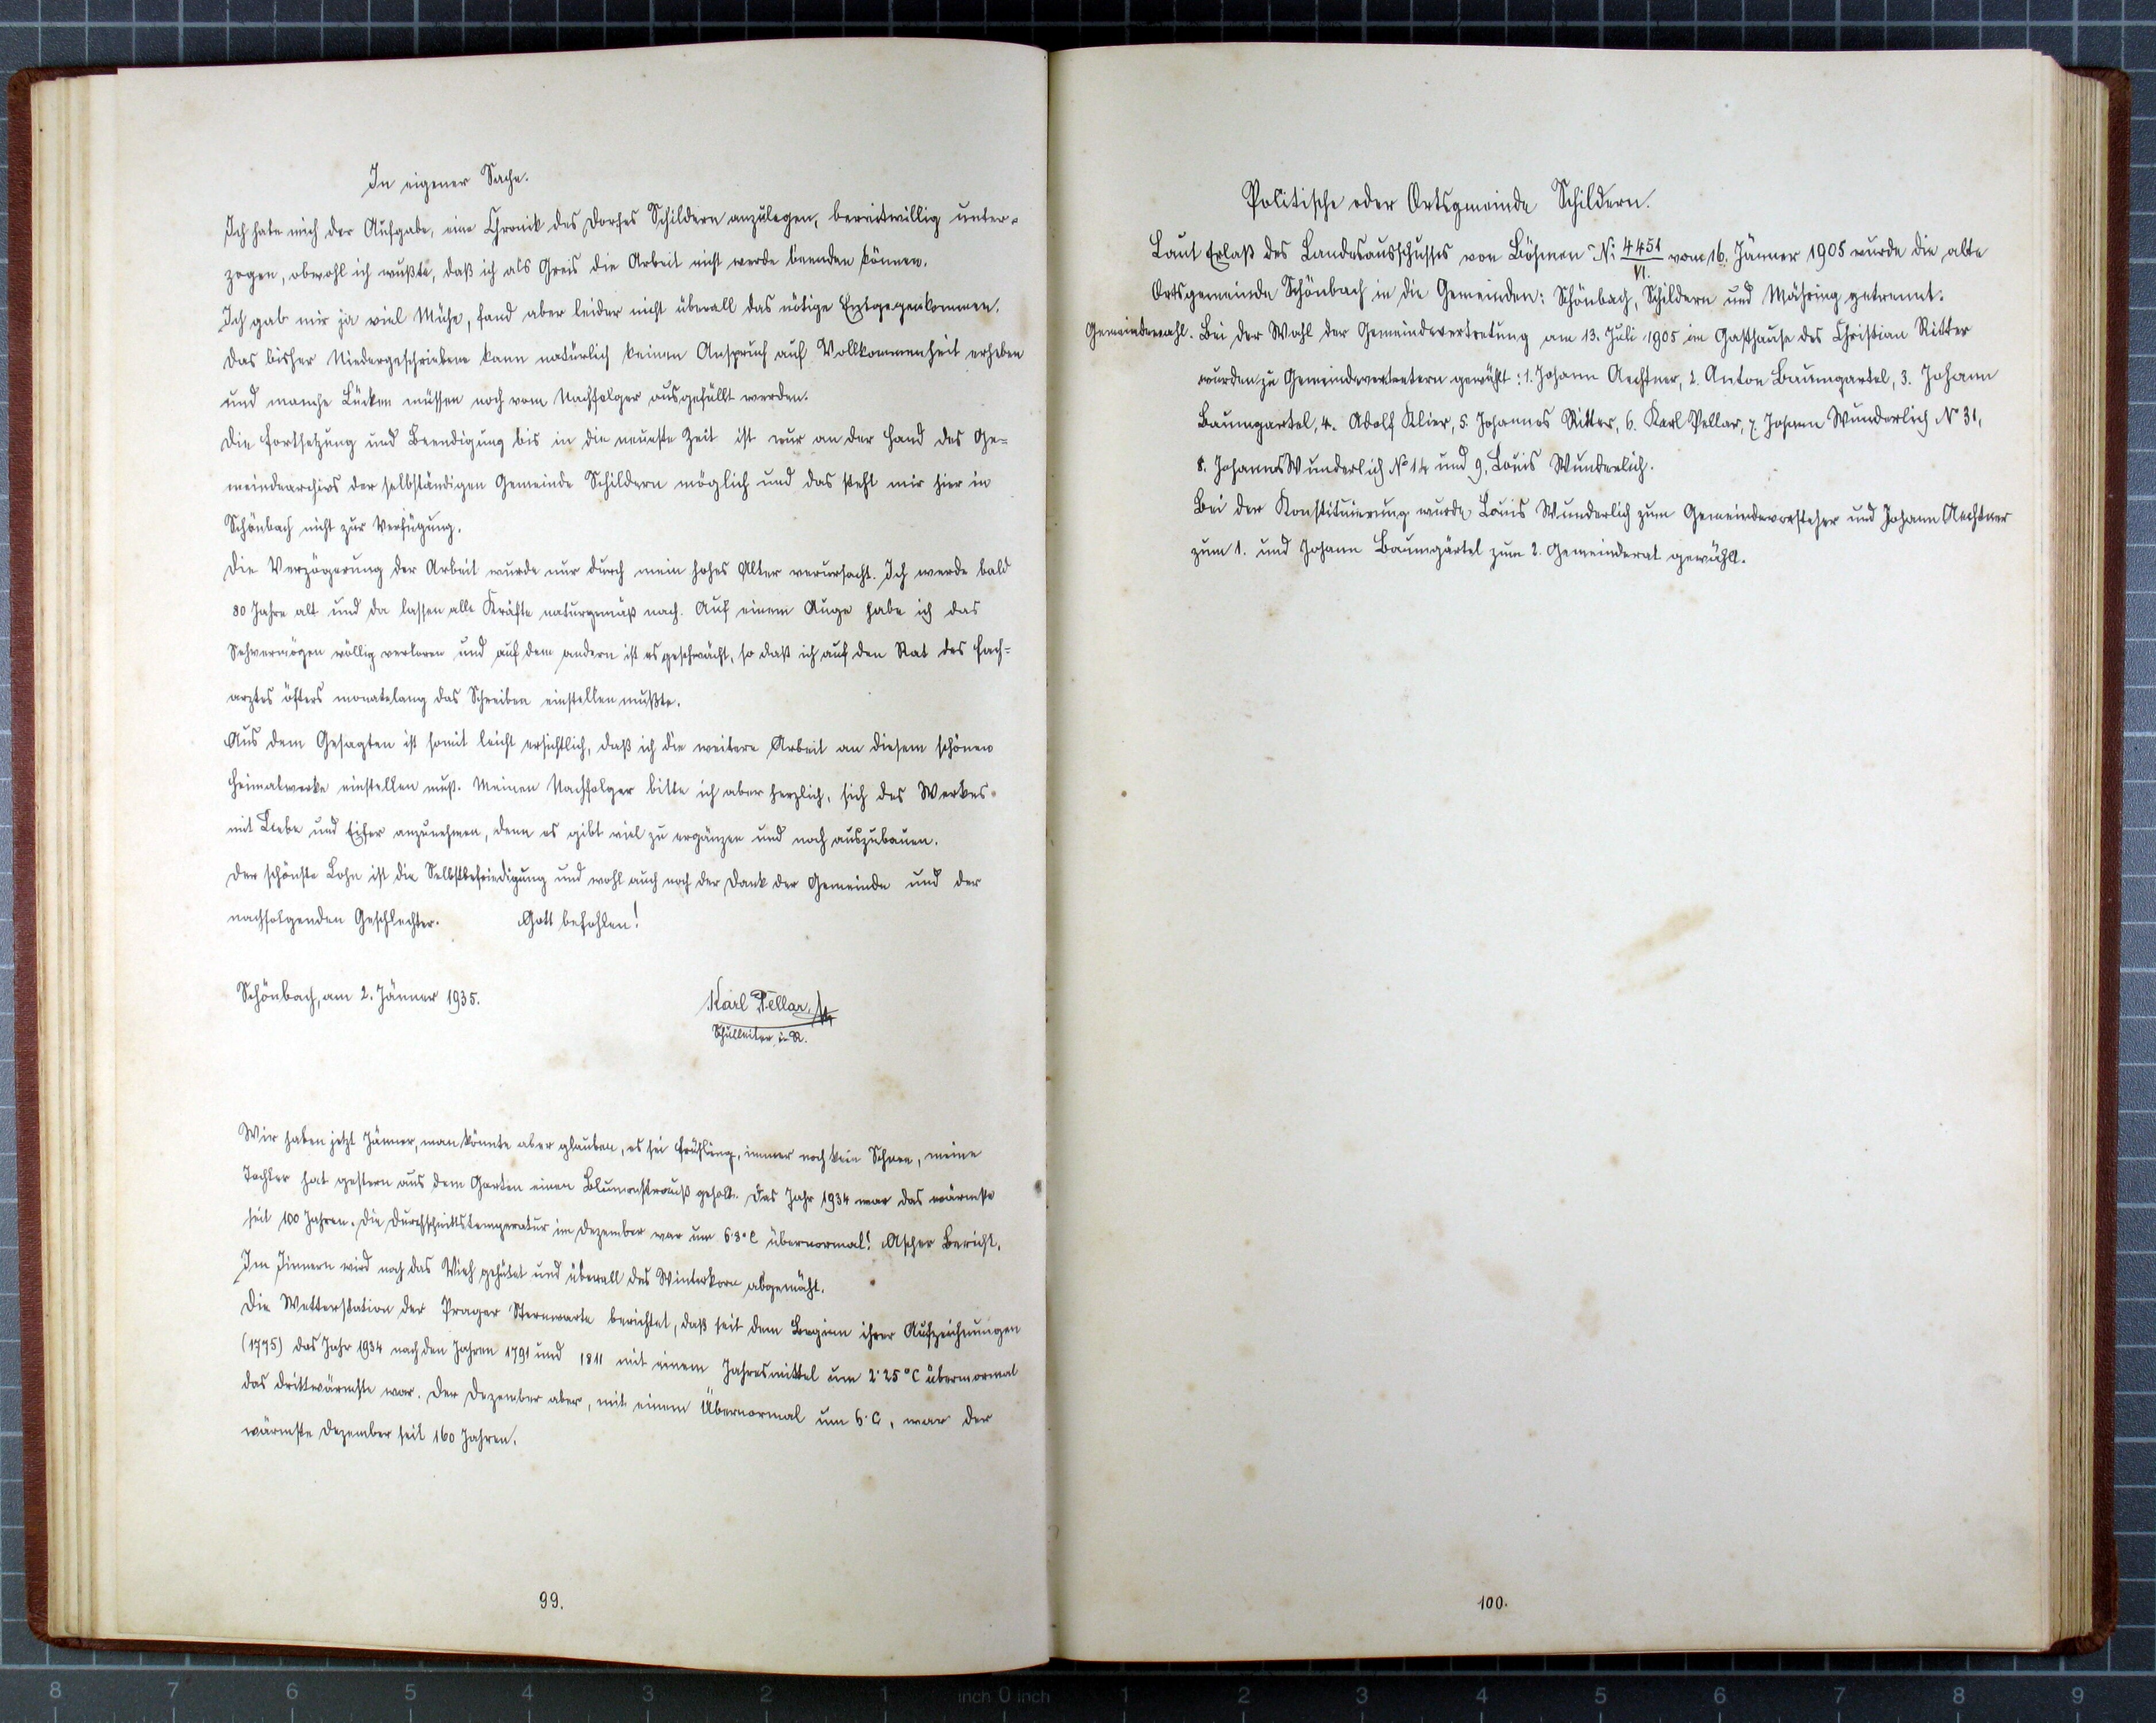 In eigener Sache.
Ich habe mich der Aufgabe, eine Chronik des Dorfes Schildern anzulegen, bereitwillig unter-
zogen, obwohl ich wußte, daß ich als Greis die Arbeit nicht werde beenden können.
Ich gab mir ja viel Mühe, fand aber leider nicht überall das nötige Entgegenkommen.
Das bisher Niedergeschriebene kann natürlich keinen Anspruch auf Vollkommenheit erheben
und manche Lücken müssen noch vom Nachfolger ausgefüllt werden.
Die Fortsetzung und Beendigung bis in die neueste Zeit ist nur an der Hand des Ge=
meindearchivs der selbständigen Gemeinde Schildern möglich und das steht mir hier in
Schönbach nicht zur Verfügung.
Die Verzögerung der Arbeit wurde nur durch mein hohes Alter verursacht. Ich werde bald
80 Jahre alt und da lassen alle Kräfte naturgemäß nach. Auf einem Auge habe ich das
Sehvermögen völlig verloren und auf dem andern ist es geschwächt, so daß ich auf den Rat des Fach=
arztes öfters monatelang das Schreiben einstellen mußte.
Aus dem Gesagten ist somit leicht ersichtlich, daß ich die weitere Arbeit an diesem schönen
Heimatwerke einstellen muß. Meinen Nachfolger bitte ich aber herzlich, sich des Werkes
mit Liebe und Eifer anzunehmen, denn es gibt viel zu ergänzen und noch auszubauen.
Der schönste Lohn ist die Selbstbefriedigung und wohl auch noch der Dank der Gemeinde und der
nachfolgenden Geschlechter. Gott befohlen!
Schönbach, am 2. Jänner 1935.
Karl Pellar,
Schulleiter i. R.
Wir haben jetzt Jänner, man könnte aber glauben, es sei Frühling, immer noch kein Schnee, meine
Tochter hat gestern aus dem Garten einen Blumenstrauß geholt. Das Jahr 1934 war das wärmste
seit 100 Jahren. Die Durchschnittstemperatur im Dezember war um 6·3°C übernormal! Ascher Bericht.
Im Innern wird noch das Vieh gehütet und überall das Winterkorn abgemäht.
Die Wetterstation der Prager Sternwarte berichtet, daß seit dem Beginn ihrer Aufzeichnungen
(1775) das Jahr 1934 nach den Jahren 1791 und 1811 mit einem Jahresmittel um 2·25°C übernormal
das drittwärmste war. Der Dezember aber, mit einem Übernormal um 6°C, war der
wärmste Dezember seit 160 Jahren.
99.
Politische oder Ortsgemeinde Schildern.
Laut Erlaß des Landesausschusses von Böhmen No 4451/VI. vom 16. Jänner 1905 wurde die alte
Ortsgemeinde Schönbach in die Gemeinden: Schönbach, Schildern und Mähring getrennt.
Gemeindewahl. Bei der Wahl der Gemeindevertretung am 13. Juli 1905 im Gasthause des Christian Ritter
wurden zu Gemeindevertretern gewählt: 1. Johann Aechtner, 2. Anton Baumgartel, 3. Johann
Baumgartel, 4. Adolf Klier, 5. Johannes Ritter, 6. Karl Pellar, 7. Johann Wunderlich No 31,
8. Johann Wunderlich No 14 und 9. Louis Wunderlich.
Bei der Konstituierung wurde Louis Wunderlich zum Gemeindevorsteher und Johann Aechtner
zum 1. und Johann Baumgärtel zum 2. Gemeinderat gewählt.
100.
8 7 6 5 4 3 2 1 inch 0 inch 1 2 3 4 5 6 7 8 9